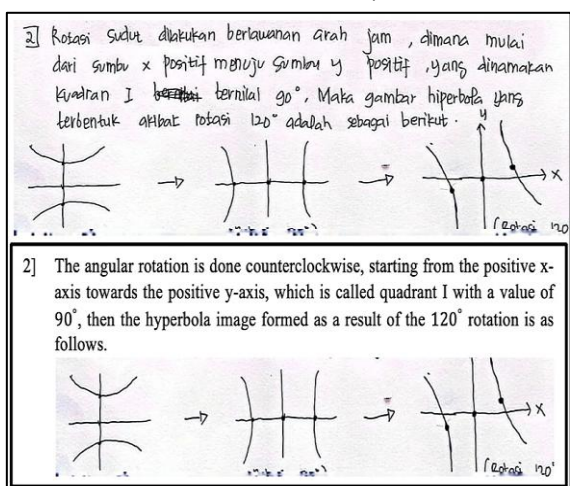 2] Rotasi sudut dilakukan berlawanan arah jam, dimana mulai
dari sumbu x positif menuju sumbu y positif, yang dinamakan
kuadran I bernilai 90°, Maka gambar hiperbola yang
terbentuk akibat rotasi 120° adalah sebagai berikut.
y
x
(Rotasi 120
2] The angular rotation is done counterclockwise, starting from the positive x-
axis towards the positive y-axis, which is called quadrant I with a value of
90°, then the hyperbola image formed as a result of the 120° rotation is as
follows.
x
(Rotasi 120°